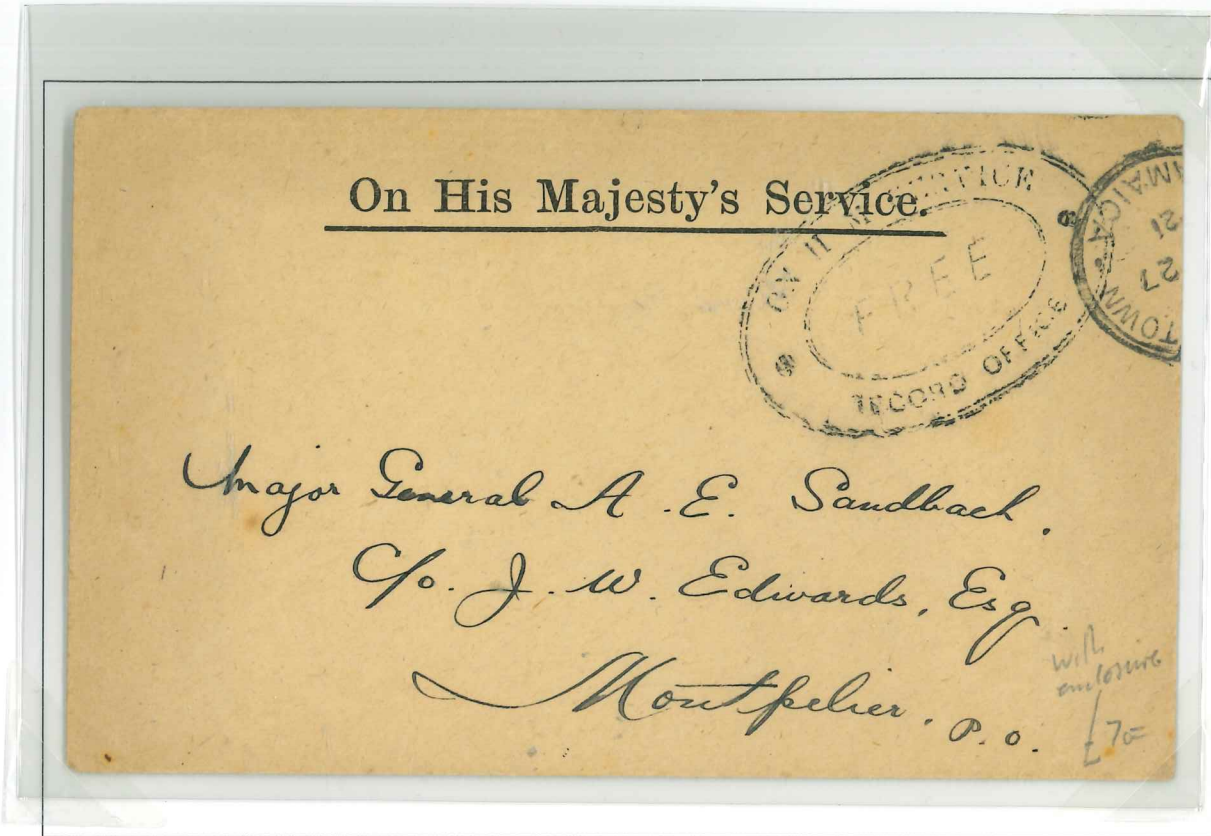 On His Majesty's Service.
ON H. M. SERVICE
FREE
RECORD OFFICE
TOWN • JAMAICA
21
27
Major General A. E. Sandbach.
C/o. J. W. Edwards, Esq.
Montpelier. P. O.
with
enclosure